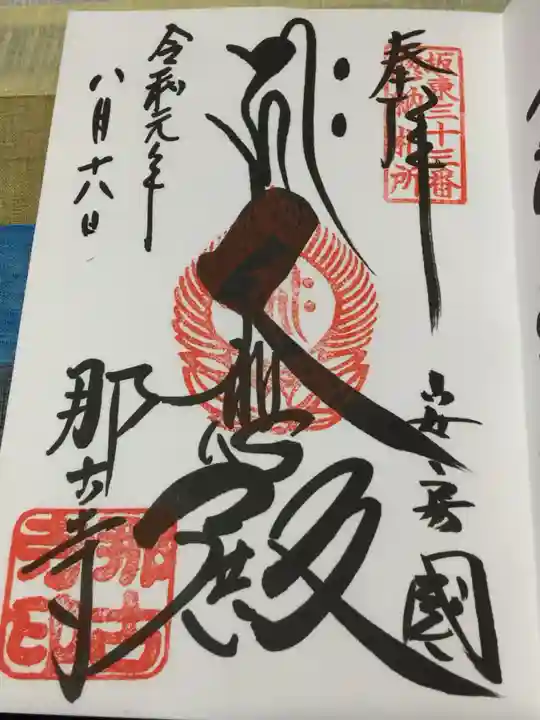 奉拝
坂東三十三番
結願札所
安房國
大悲殿
令和元年
八月十八日
那古寺
那古
寺印